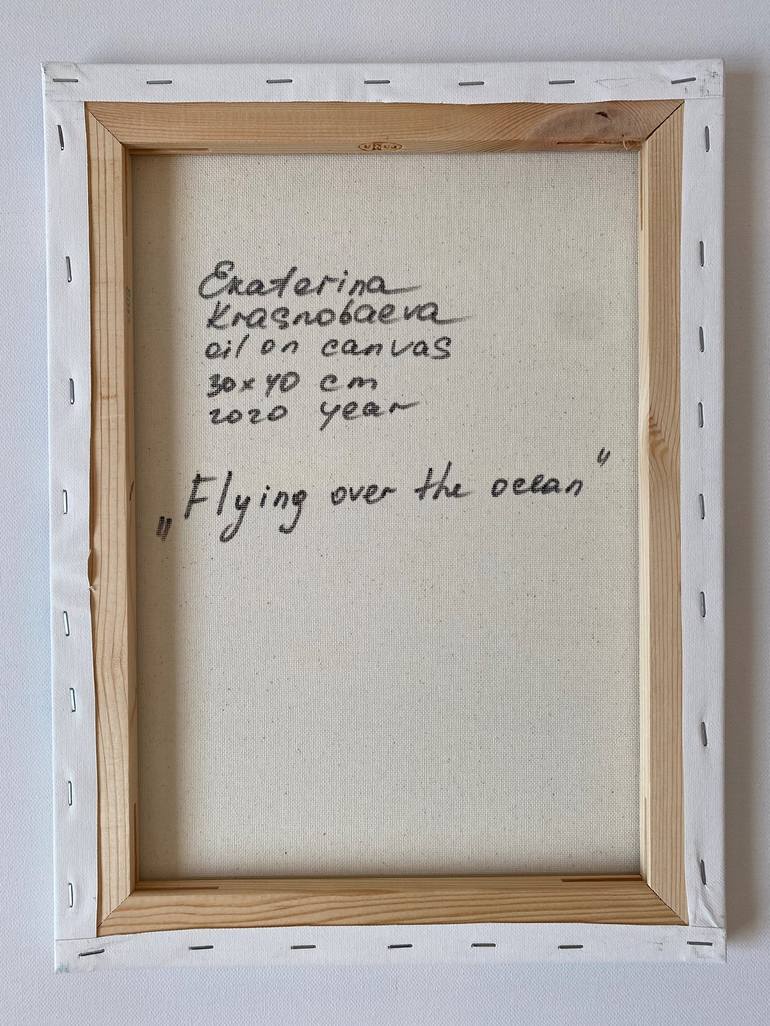 Ekaterina
Krasnobaeva
oil on canvas
30x40 cm
2020 year
„Flying over the ocean"